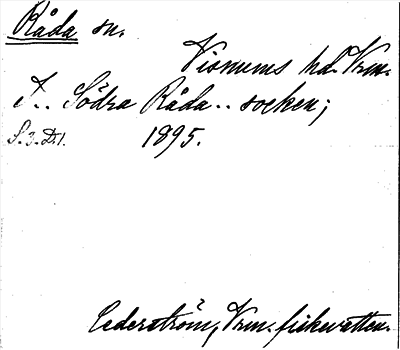 Råda sn.
Visnums hd. Vrm.
I.. Södra Råda.. socken;
S. 3. D. 1. 1895.
Cederström, Vrm. fiskevatten.